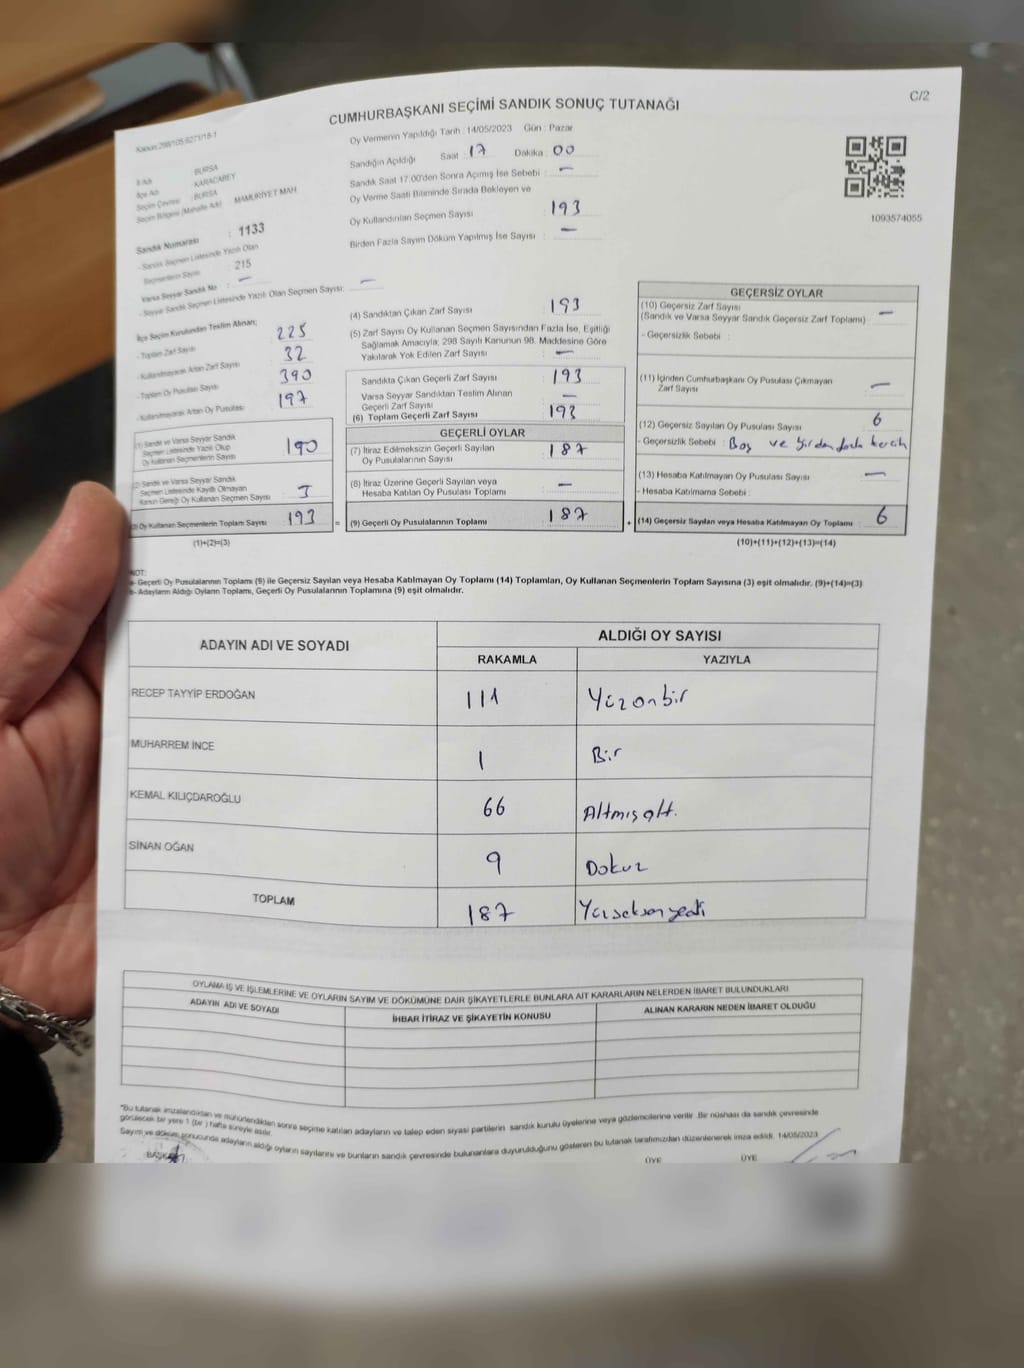 C/2
CUMHURBAŞKANI SEÇİMİ SANDIK SONUÇ TUTANAĞI
Oy Vermenin Yapıldığı Tarih : 14/05/2023 Gün : Pazar
Sandığın Açıldığı Saat : 17 Dakika : 00
Sandık Saat 17:00'den Sonra Açımış İse Sebebi : —
Oy Verme Saati Bitiminde Sırada Bekleyen ve
Oy Kullandırılan Seçmen Sayısı : 193
Birden Fazla Sayım Döküm Yapılmış İse Sayısı : —
1093574055
İli Adı : BURSA
İlçe Adı : KARACABEY
Seçim Çevresi : BURSA
Seçim Bölgesi (Mahalle Adı) : MAMURİYET MAH
Sandık Numarası : 1133
- Sandık Seçmen Listesinde Yazılı Olan
Seçmenlerin Sayısı : 215
Varsa Seyyar Sandık No : —
- Seyyar Sandık Seçmen Listesinde Yazılı Olan Seçmen Sayısı: —
İlçe Seçim Kurulundan Teslim Alınan;
- Toplam Zarf Sayısı 225
- Kullanılmayarak Artan Zarf Sayısı 32
- Toplam Oy Pusulası Sayısı 390
- Kullanılmayarak Artan Oy Pusulası 197
(1) Sandık ve Varsa Seyyar Sandık
Seçmen Listesinde Yazılı Olup
Oy Kullanan Seçmenlerin Sayısı 190
(2) Sandık ve Varsa Seyyar Sandık
Seçmen Listesinde Kayıtlı Olmayan
Kanun Gereği Oy Kullanan Seçmen Sayısı 3
(3) Oy Kullanan Seçmenlerin Toplam Sayısı 193 =
(1)+(2)=(3)
(4) Sandıktan Çıkan Zarf Sayısı 193
(5) Zarf Sayısı Oy Kullanan Seçmen Sayısından Fazla İse, Eşitliği
Sağlamak Amacıyla, 298 Sayılı Kanunun 98. Maddesine Göre
Yakılarak Yok Edilen Zarf Sayısı —
Sandıkta Çıkan Geçerli Zarf Sayısı 193
Varsa Seyyar Sandıktan Teslim Alınan
Geçerli Zarf Sayısı —
(6) Toplam Geçerli Zarf Sayısı 193
GEÇERLİ OYLAR
(7) İtiraz Edilmeksizin Geçerli Sayılan
Oy Pusulalarının Sayısı 187
(8) İtiraz Üzerine Geçerli Sayılan veya
Hesaba Katılan Oy Pusulası Toplamı —
(9) Geçerli Oy Pusulalarının Toplamı 187 +
GEÇERSİZ OYLAR
(10) Geçersiz Zarf Sayısı
(Sandık ve Varsa Seyyar Sandık Geçersiz Zarf Toplamı) —
- Geçersizlik Sebebi :
(11) İçinden Cumhurbaşkanı Oy Pusulası Çıkmayan
Zarf Sayısı —
(12) Geçersiz Sayılan Oy Pusulası Sayısı 6
- Geçersizlik Sebebi : Boş ve birden fazla tercih
(13) Hesaba Katılmayan Oy Pusulası Sayısı —
- Hesaba Katılmama Sebebi :
(14) Geçersiz Sayılan veya Hesaba Katılmayan Oy Toplamı : 6
(10)+(11)+(12)+(13)=(14)
NOT:
a- Geçerli Oy Pusulalarının Toplamı (9) ile Geçersiz Sayılan veya Hesaba Katılmayan Oy Toplamı (14) Toplamları, Oy Kullanan Seçmenlerin Toplam Sayısına (3) eşit olmalıdır. (9)+(14)=(3)
b- Adayların Aldığı Oyların Toplamı, Geçerli Oy Pusulalarının Toplamına (9) eşit olmalıdır.
ADAYIN ADI VE SOYADI ALDIĞI OY SAYISI
RAKAMLA YAZIYLA
RECEP TAYYİP ERDOĞAN 111 Yüzonbir
MUHARREM İNCE 1 Bir
KEMAL KILIÇDAROĞLU 66 Altmışaltı
SİNAN OĞAN 9 Dokuz
TOPLAM 187 Yüzseksenyedi
OYLAMA İŞ VE İŞLEMLERİNE VE OYLARIN SAYIM VE DÖKÜMÜNE DAİR ŞİKAYETLERLE BUNLARA AİT KARARLARIN NELERDEN İBARET BULUNDUKLARI
ADAYIN ADI VE SOYADI İHBAR İTİRAZ VE ŞİKAYETİN KONUSU ALINAN KARARIN NEDEN İBARET OLDUĞU
"Bu tutanak imzalandıktan ve mühürlendikten sonra seçime katılan adayların ve talep eden siyasi partilerin sandık kurulu üyelerine veya gözlemcilerine verilir. Bir nüshası da sandık çevresinde
görülecek bir yere 1 (bir ) hafta süreyle asılır.
Sayım ve döküm sonucunda adayların aldığı oyların sayılarını ve bunların sandık çevresinde bulunanlara duyurulduğunu gösteren bu tutanak tarafımızdan düzenlenerek imza edildi. 14/05/2023
BAŞKAN ÜYE ÜYE